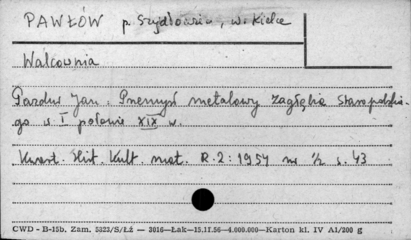 PAWŁÓW p. Szydłowiec, w. Kielce
Walcownia
Pazdur Jan: Przemysł metalowy Zagłębia Staropolskie-
go w I połowie XIX w.
Kwart. Hist. Kult. mat. R. 2: 1954 nr 1/2 s. 43
CWD - B-15b. Zam. 5823/S/Łż — 3016—Łak—15.II.56—4.000.000—Karton kl. IV A1/200 g